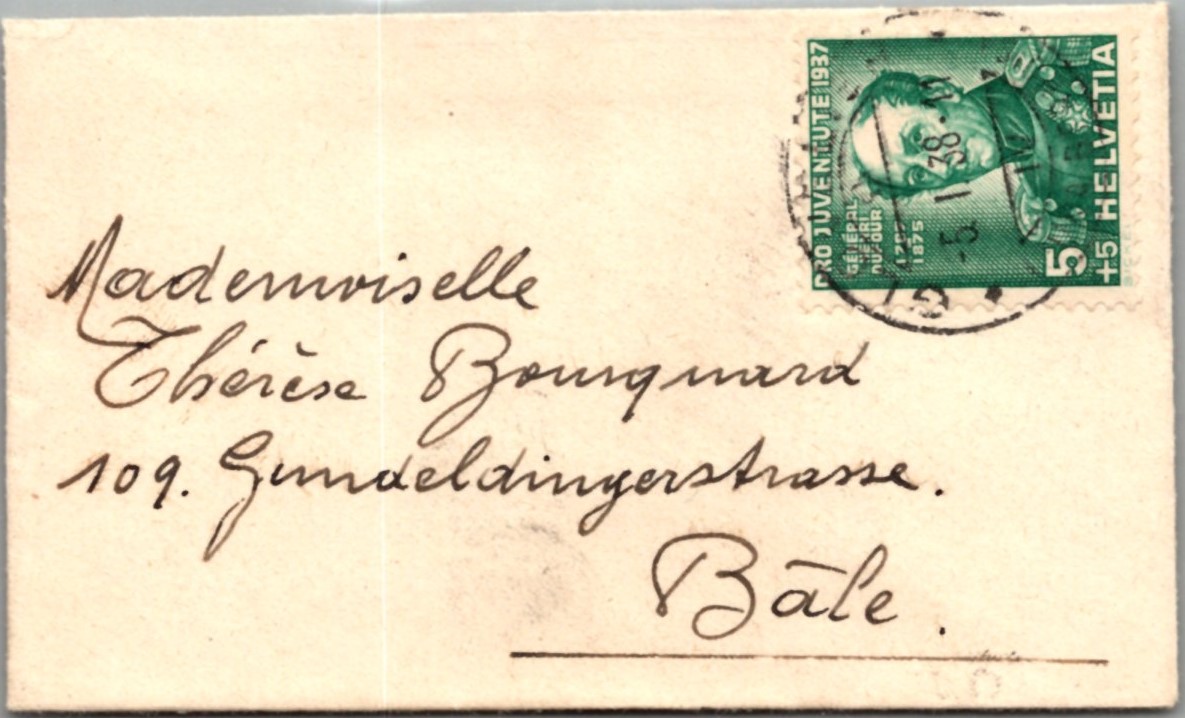 PRO JUVENTUTE 1937
GÉNÉRAL
HENRI
DUFOUR
1787
1875
5
+5 HELVETIA
-5. I 38 - 11
Mademoiselle
Thérèse Bourquard
109. Gundeldingerstrasse.
Bâle.